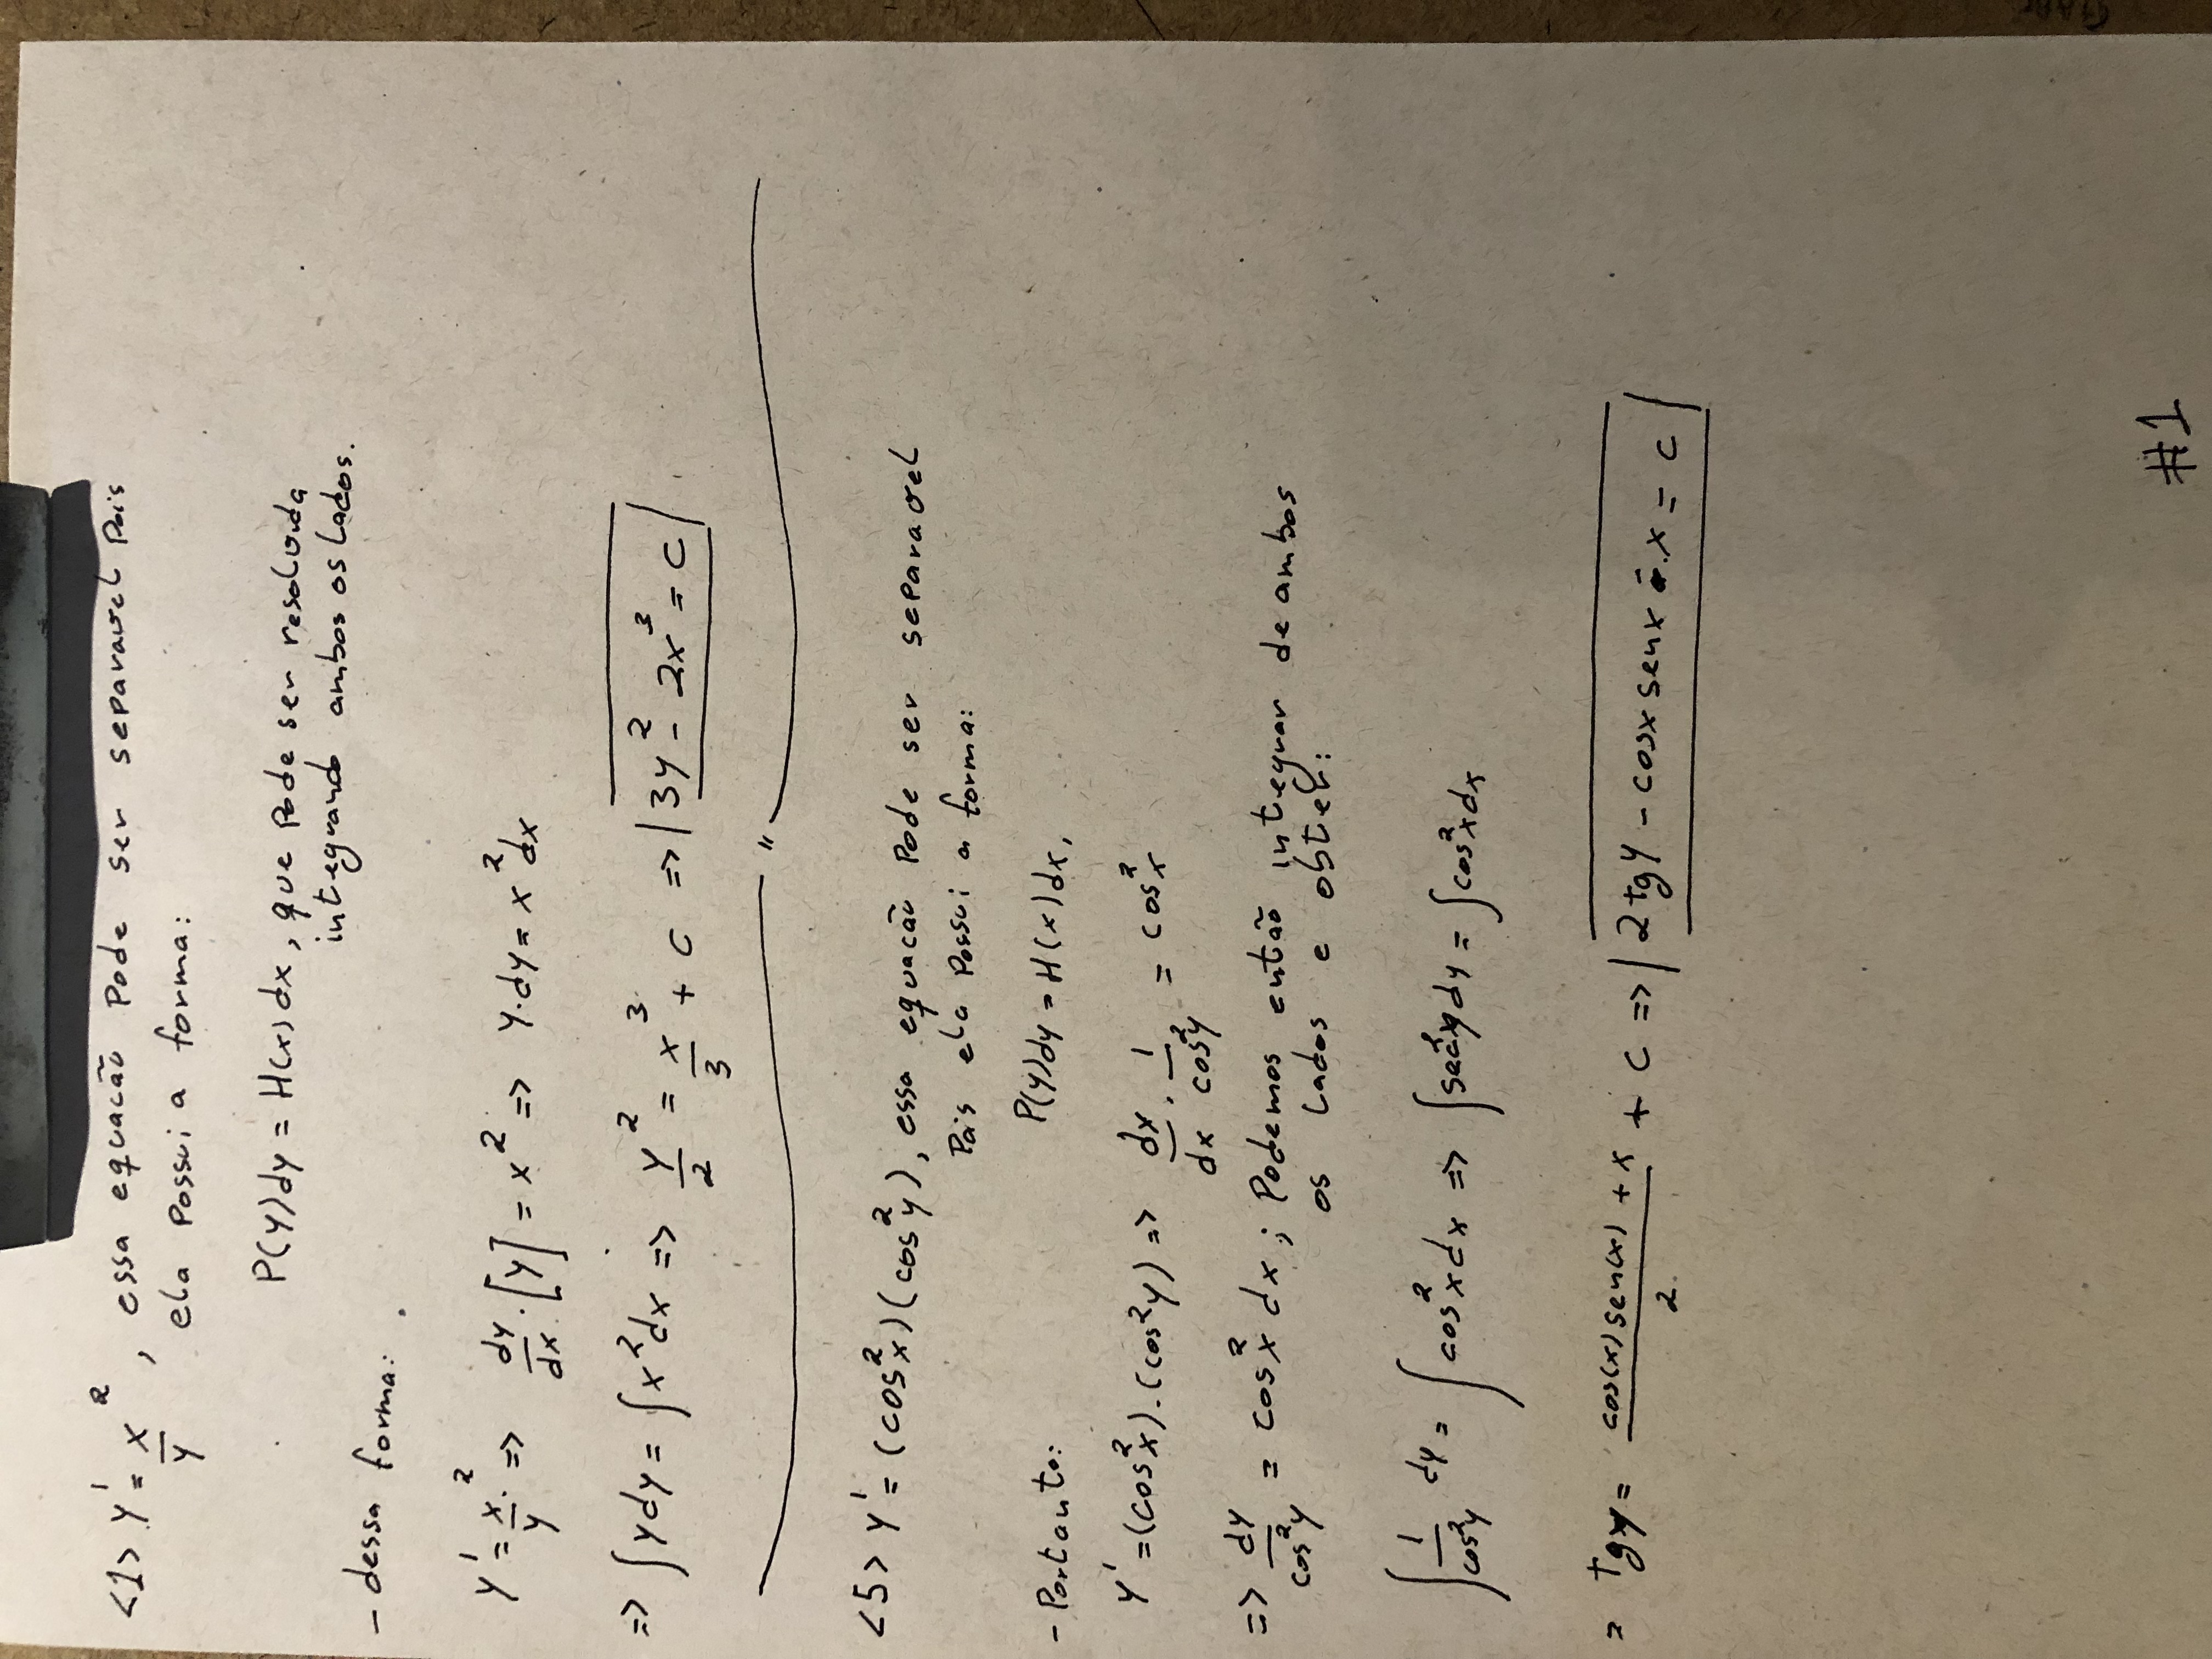 <1> y' = x²/y, essa equacão pode ser separavel pois
ela possui a forma:
P(y)dy = H(x)dx, que pode ser resolvida
integrando ambos os lados.
- dessa forma:
y' = x²/y => dy/dx · [y] = x² => y·dy = x²dx
=> ∫ydy = ∫x²dx => y²/2 = x³/3 + c => |3y² - 2x³ = c|
"
<5> y' = (cos²x)(cos²y), essa equacão pode ser separavel
pois ela possui a forma:
P(y)dy = H(x)dx,
- Portanto:
y' = (cos²x).(cos²y) => dy/dx · 1/cos²y = cos²x
=> dy/cos²y = cos²x dx; Podemos então integrar de ambos
os lados e obter:
∫1/cos²y dy = ∫cos²x dx => ∫sec²y dy = ∫cos²x dx
= tgy = (cos(x)sen(x) + x)/2 + c => |2tgy - cosx senx - x = c|
#1